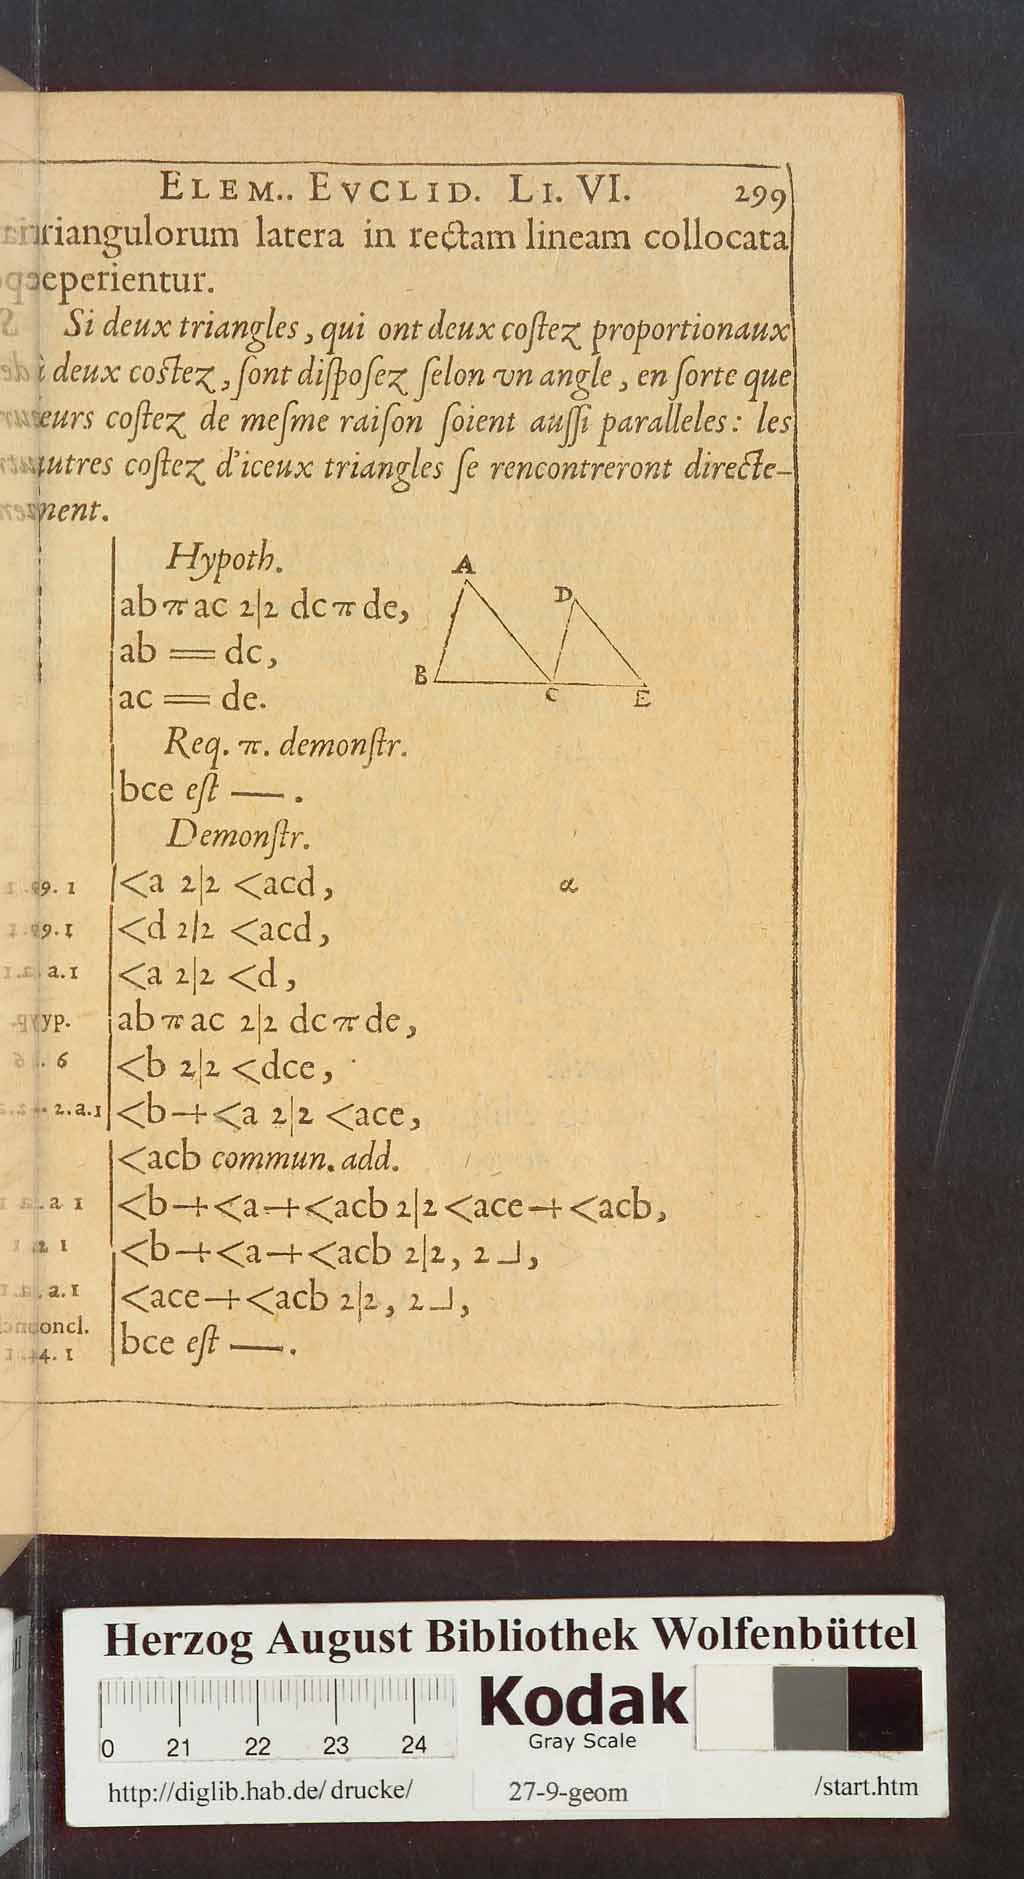 ELEM.. EVCLID. LI. VI. 299
riangulorum latera in rectam lineam collocata
eperientur.
Si deux triangles, qui ont deux coſtez proportionaux
à deux coſtez, ſont diſpoſez ſelon vn angle, en ſorte que
eurs coſtez de meſme raiſon ſoient auſſi paralleles: les
utres coſtez d'iceux triangles ſe rencontreront directe-
ment.
Hypoth.
ab π ac 2|2 dc π de,
ab = dc,
ac = de.
A
D
B
C
E
Req. π. demonſtr.
bce eſt —.
Demonſtr.
9. 1 <a 2|2 <acd, α
9. 1 <d 2|2 <acd,
a. 1 <a 2|2 <d,
yp. ab π ac 2|2 dc π de,
. 6 <b 2|2 <dce,
2. a. 1 <b + <a 2|2 <ace,
<acb commun. add.
a 1 <b + <a + <acb 2|2 <ace + <acb,
1 <b + <a + <acb 2|2, 2 ⅃,
a. 1 <ace + <acb 2|2, 2 ⅃,
oncl. bce eſt —.
4. 1
Herzog August Bibliothek Wolfenbüttel
0 21 22 23 24
Kodak
Gray Scale
http://diglib.hab.de/ drucke/ 27-9-geom /start.htm